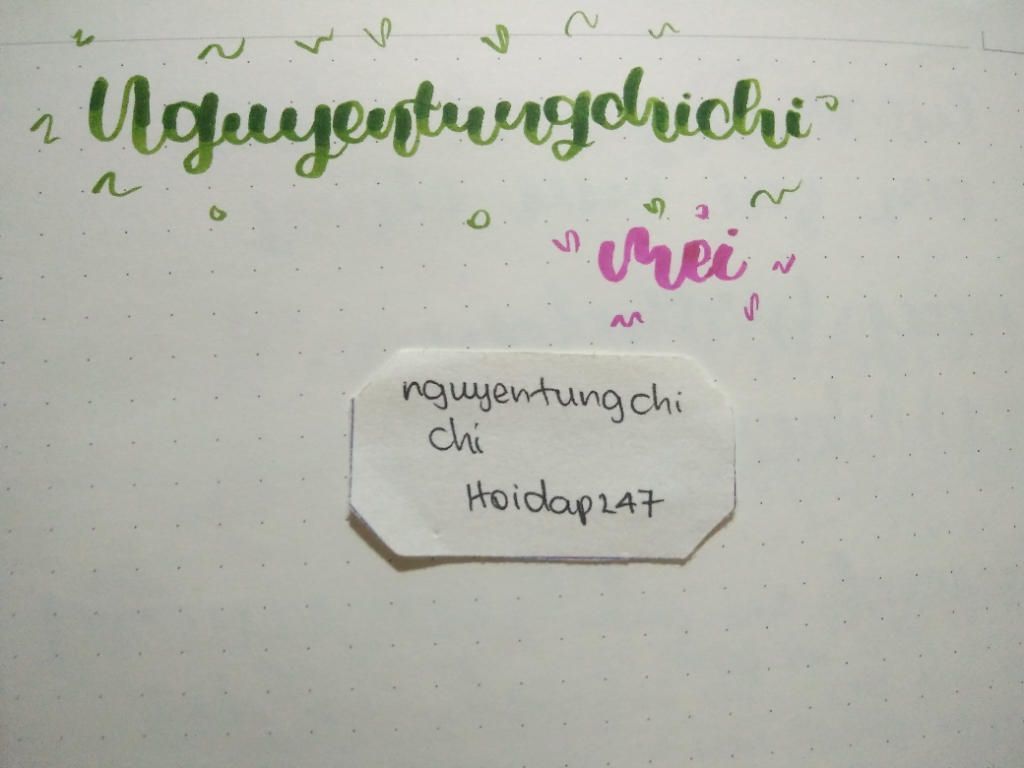 Nguyentungchichi
Mei
nguyentungchi
chi
Hoidap247